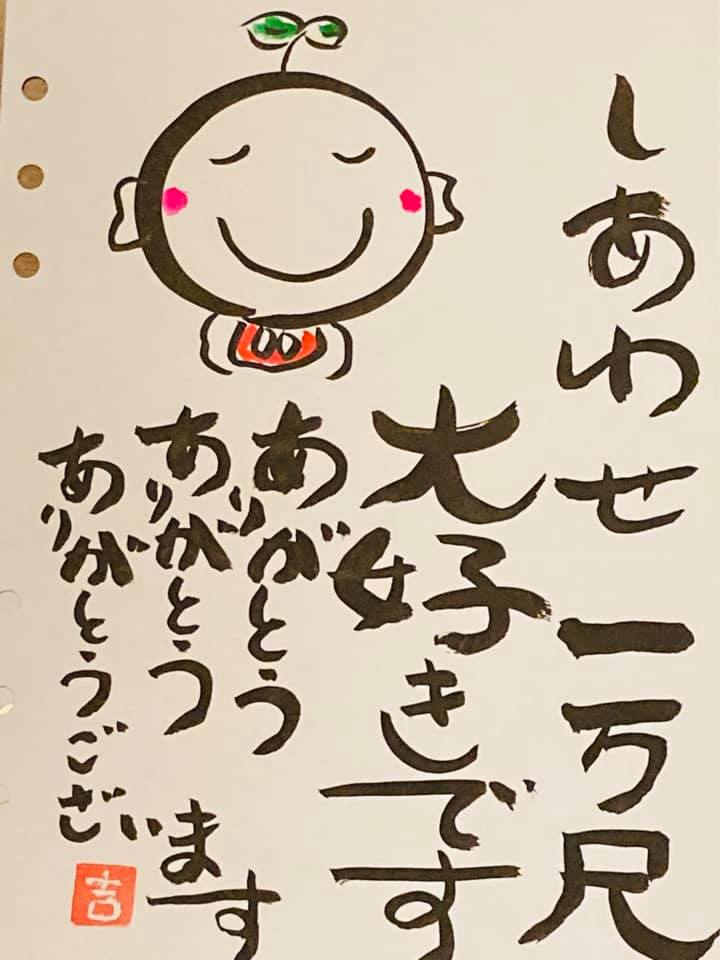 しあわせ一万尺
大好きです
ありがとう
ありがとう
ありがとうございます
吉